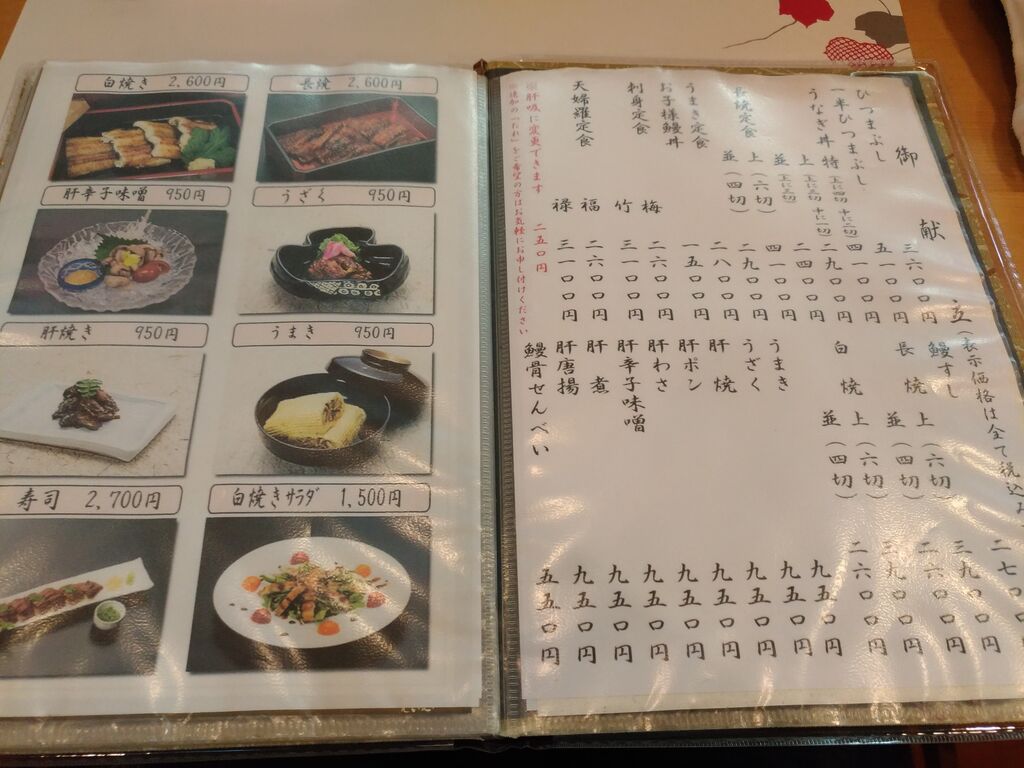 白焼き 2,600円
長焼 2,600円
肝辛子味噌 950円
うざく 950円
肝焼き 950円
うまき 950円
寿司 2,700円
白焼きサラダ 1,500円
御献立(表示価格は全て税込み
ひつまぶし 三六〇〇円
一半ひつまぶし 五一〇〇円
うなぎ丼 特 上に四切 中に二切 四一〇〇円
上 上に三切 中に一切 二九〇〇円
並 上に三切 二四〇〇円
長焼定食 上(六切) 四一〇〇円
並(四切) 二九〇〇円
うまき定食 二八〇〇円
お子様鰻丼 一五〇〇円
刺身定食 梅 二六〇〇円
竹 三一〇〇円
天婦羅定食 福 二六〇〇円
禄 三一〇〇円
※肝吸に変更できます 二五〇円
※追加の「たれ」をご希望の方はお気軽にお申し付けください
鰻すし 二七〇〇円
長焼 上(六切) 三九〇〇円
並(四切) 二六〇〇円
白焼 上(六切) 三九〇〇円
並(四切) 二六〇〇円
うまき 九五〇円
うざく 九五〇円
肝焼 九五〇円
肝ポン 九五〇円
肝わさ 九五〇円
肝辛子味噌 九五〇円
肝煮 九五〇円
肝唐揚 九五〇円
鰻骨せんべい 五五〇円